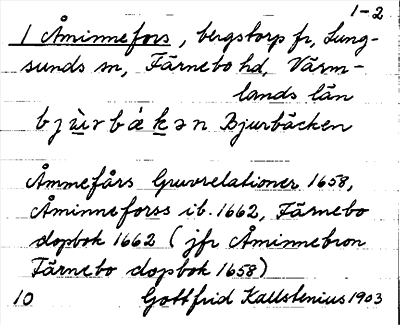 1-2
1 Åminnefors, bergstorp fr, Lung-
sunds sn, Färnebo hd, Värm-
lands län
bjùrbákən Bjurbäcken
Åmmefårs Gruvrelationer 1658,
Åminneforss ib. 1662, Färnebo
dopbok 1662 (jfr Åminnebron
Färnebo dopbok 1658)
10 Gottfrid Kallstenius 1903